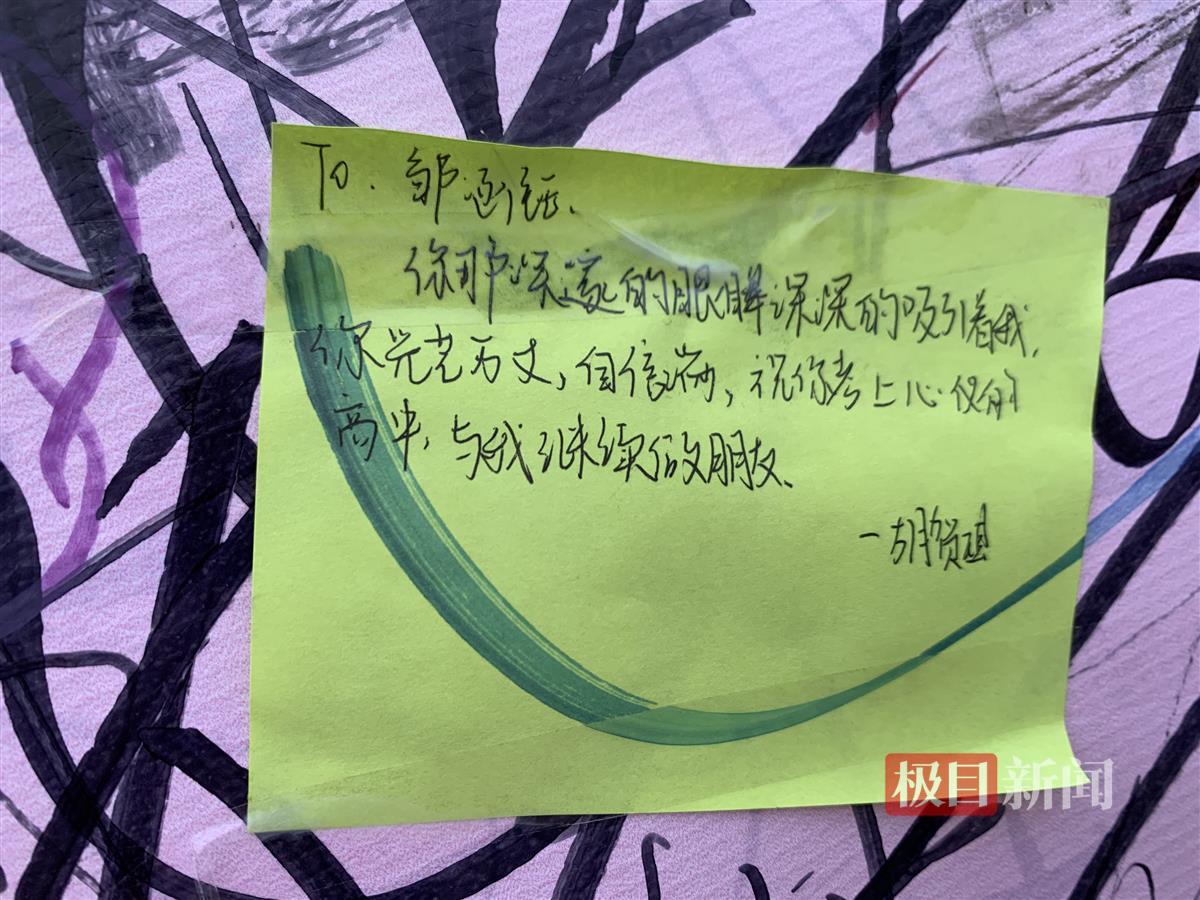 To. 邹涵钰.
你那深邃的眼眸深深的吸引着我.
你光芒万丈, 自信满满, 祝你考上心仪的
高中, 与我继续做朋友.
一胡贺琪
极目新闻